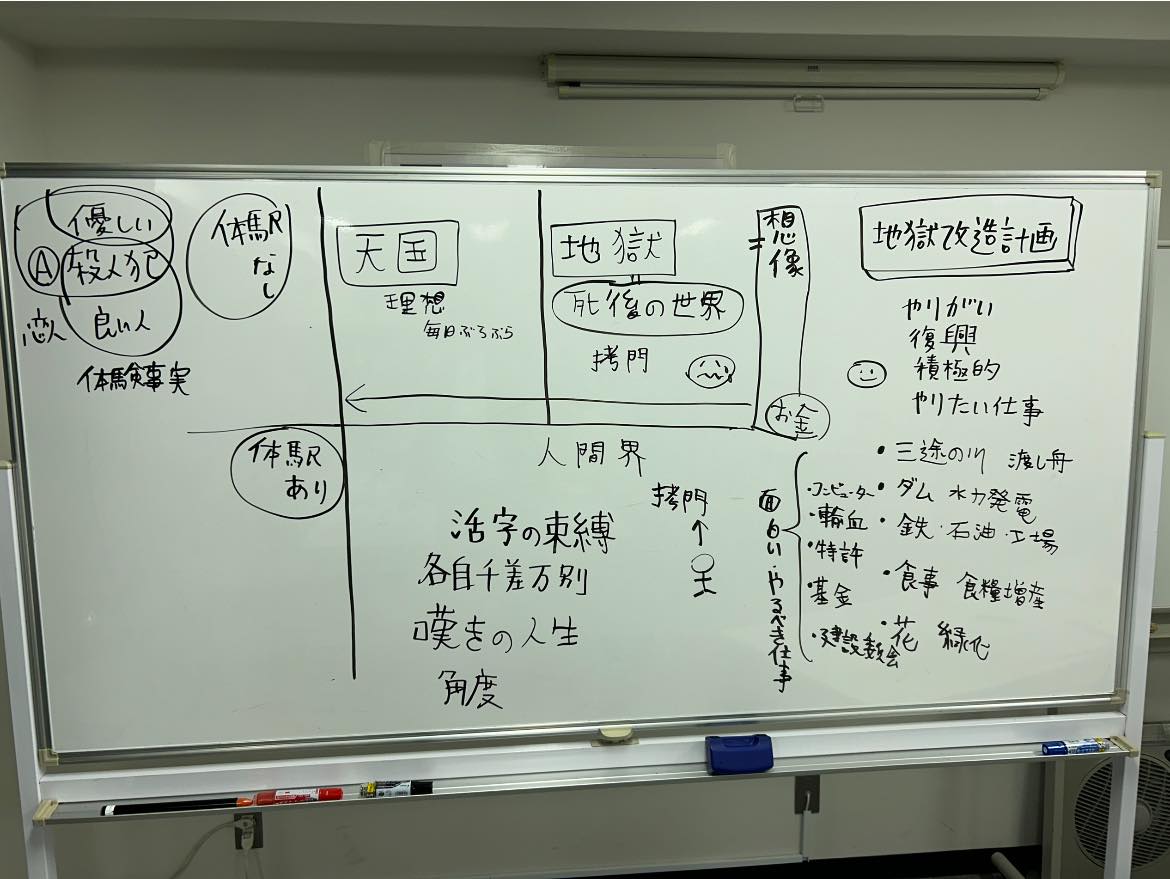 優しい
A 殺人犯
恋人 良い人
体験事実
体馭
なし
体馭
あり
天国
理想
毎日ぶらぶら
地獄
死後の世界
拷問
想像
お金
人間界
活字の束縛
各自千差万別
嘆きの人生
角度
拷問
面白い・やるべき仕事
地獄改造計画
やりがい
復興
積極的
やりたい仕事
・三途の川 渡し舟
・ダム 水力発電
・鉄・石油・工場
・食事 食糧増産
・花 緑化
・コンピューター
・輸血
・特許
・基金
・建設委員会